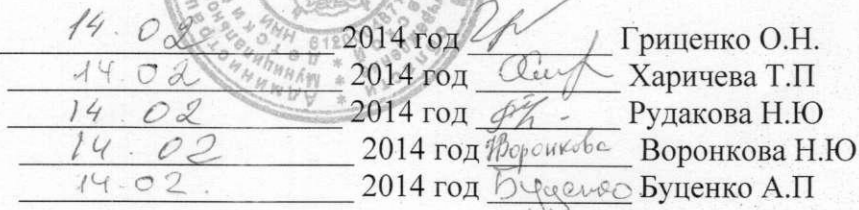 14.02 2014 год Гриценко О.Н.
14.02 2014 год Харичева Т.П
14.02 2014 год Рудакова Н.Ю
14.02 2014 год Воронкова Воронкова Н.Ю
14.02. 2014 год Буценко Буценко А.П